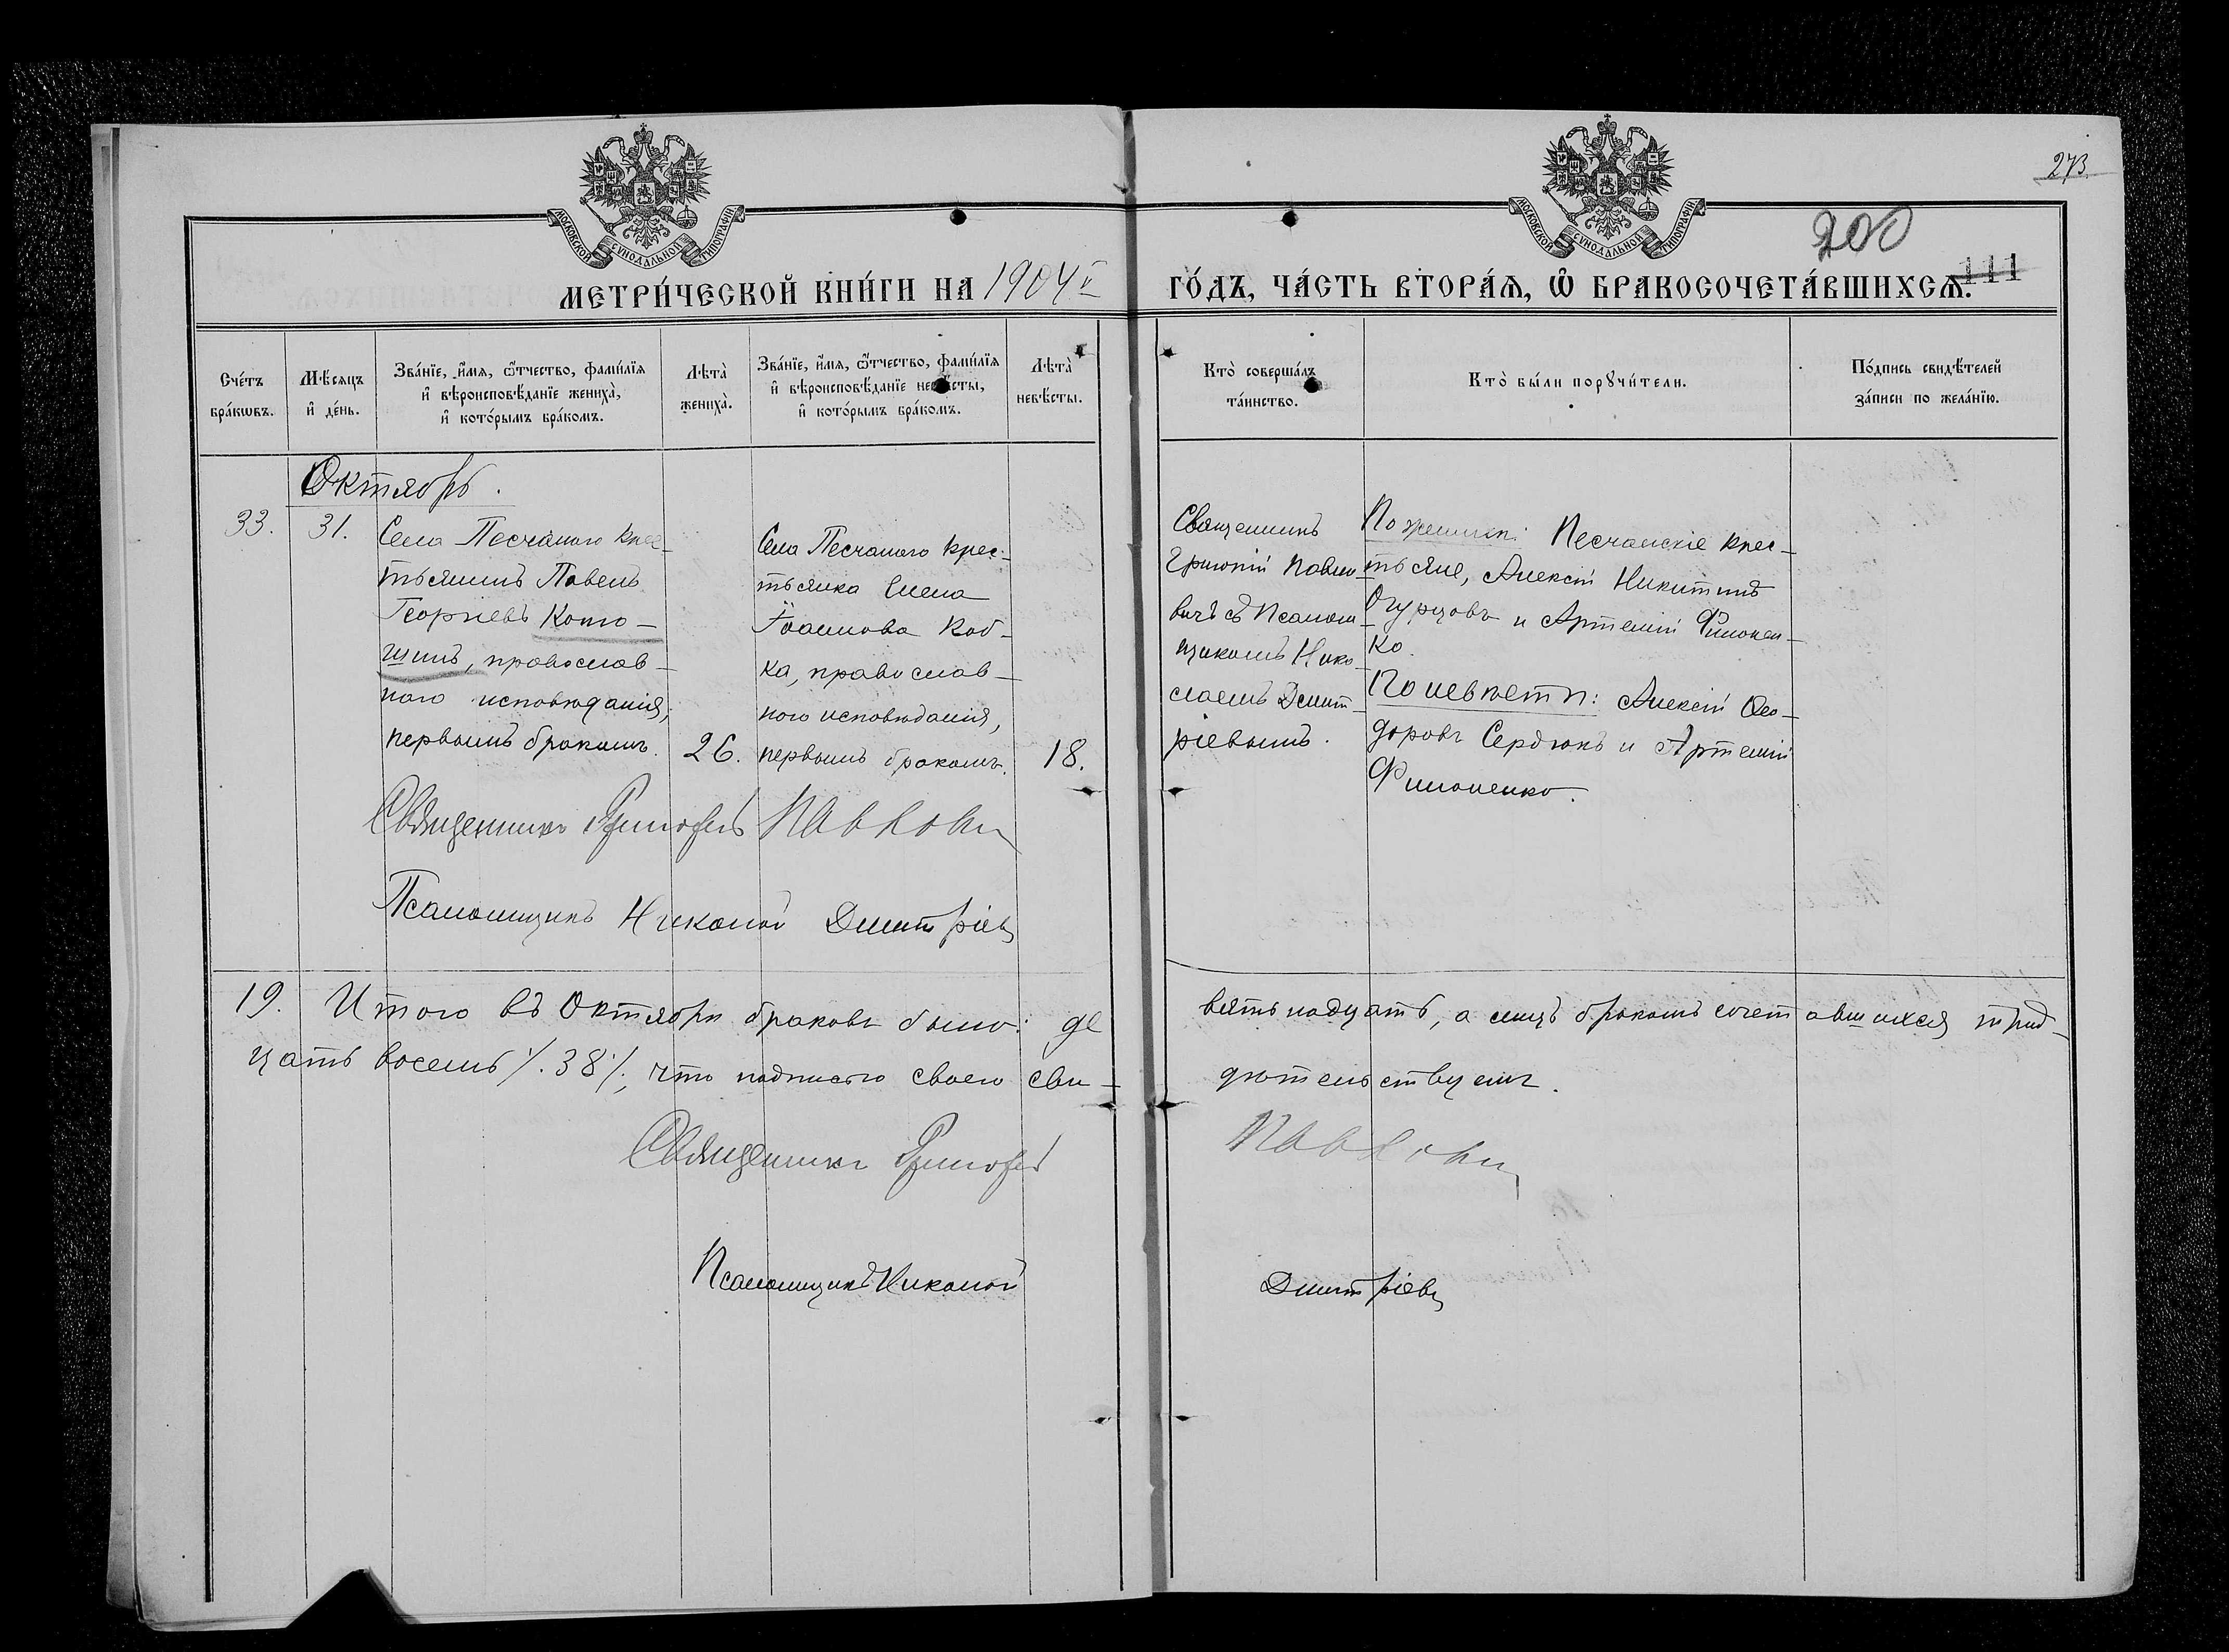 273
200
111
МОСКОВСКОЙ СѴНОДАЛЬНОЙ ТИПОГРАФІИ
МОСКОВСКОЙ СѴНОДАЛЬНОЙ ТИПОГРАФІИ
МЕТРИ́ЧЕСКОЙ КНИ́ГИ НА 1904й ГО́ДЪ, ЧА́СТЬ ВТОРА́Я, Ѡ БРАКОСОЧЕТА́ВШИХСѦ.
Сче́тъ бра́кѡвъ.
Мѣ́сяцъ и҆ де́нь.
Зва́нїе, и҆́мя, ѻ҆́тчество, фами́лїя и҆ вѣроисповѣ́данїе жениха̀, и҆ кото́рымъ бра́комъ.
Лѣта̀ жениха̀.
Зва́нїе, и҆́мя, ѻ҆́тчество, фами́лїя и҆ вѣроисповѣ́данїе невѣ́сты, и҆ кото́рымъ бра́комъ.
Лѣта̀ невѣ́сты.
Кто̀ соверша́лъ та́инство.
Кто̀ бы́ли порꙋчи́тели.
По́дпись свидѣ́телей за́писи по жела́нїю.
Октябрь.
33.
31.
Села Песчанаго крес-
тьянинъ Павелъ
Георгіевъ Кото-
шинъ, православ-
наго исповѣданія,
первымъ бракомъ.
26.
Села Песчанаго крес-
тьянка Елена
Іоаннова Коб-
ка, православ-
ного исповѣданія,
первымъ бракомъ.
18.
Священникъ
Григорій Павло-
вичъ съ Псалом-
щикомъ Нико-
лаемъ Дмит-
ріевымъ.
По женихѣ: Песчанскіе крес-
тьяне, Алексѣй Никитинъ
Огурцовъ и Артемій Филонен-
ко.
По невѣстѣ: Алексѣй Ѳео-
доровъ Сердюкъ и Артемій
Филоненко.
Священникъ Григорій Павловичъ
Псаломщикъ Николай Дмитріевъ
19. Итого въ Октябрѣ браковъ было: де вятьнадцать, а лицъ бракомъ сочетавшихся трид-
цать восемь /.38/., что подписью своею сви- дѣтельствуемъ.
Священникъ Григорій Павловичъ
Псаломщикъ Николай Дмитріевъ